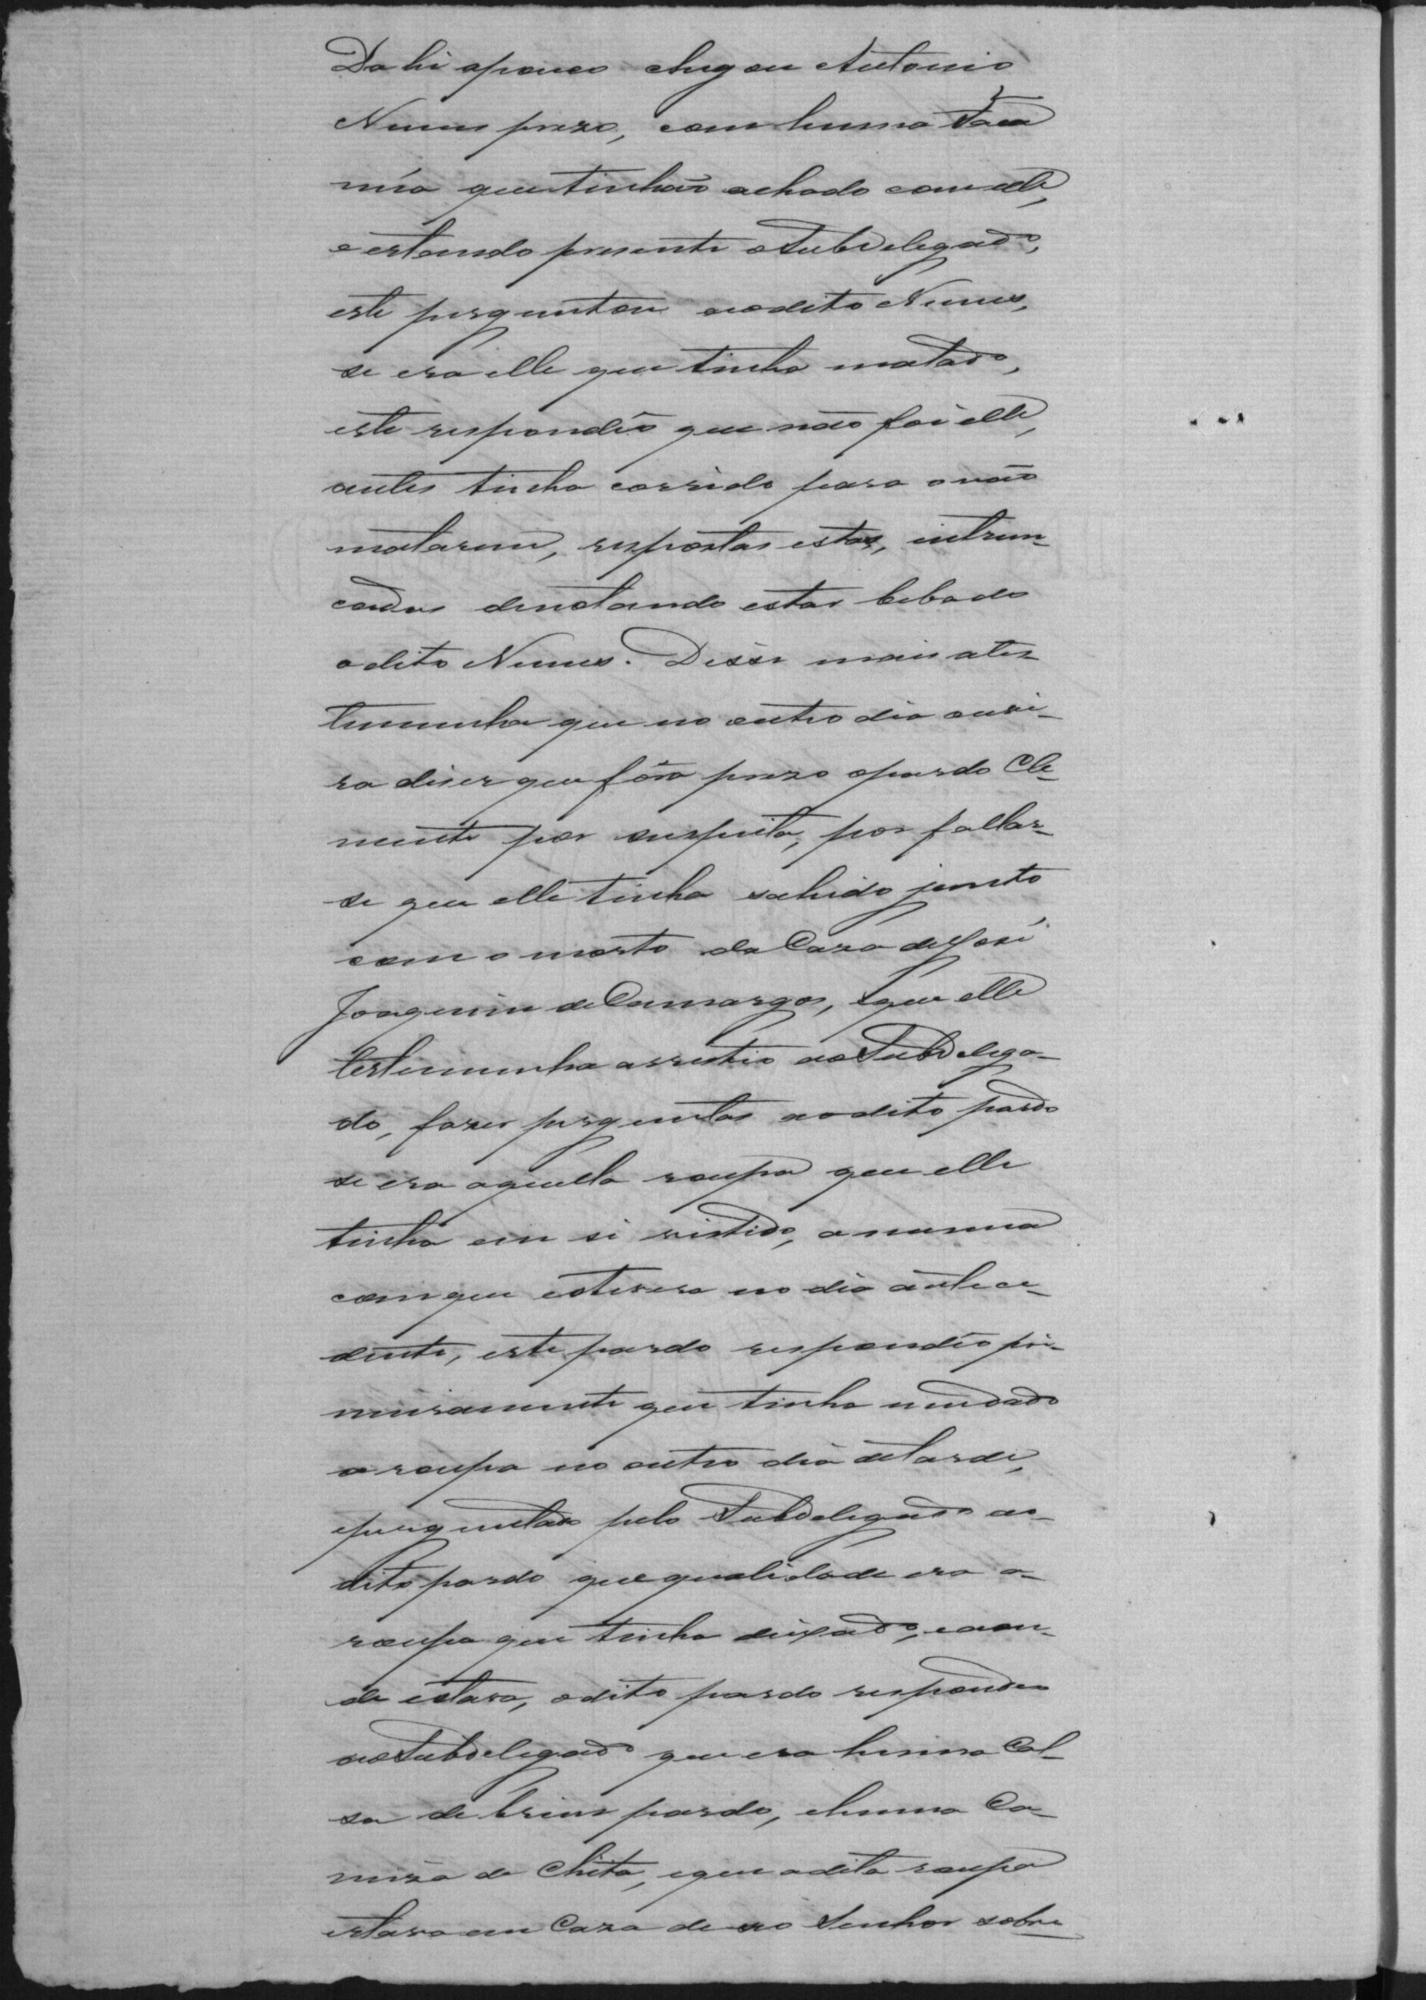 Dahi apouco chegou Antonio
Nunes prezo, com huma Faca
núa que tinhão achado com elle,
e estando presente o Subdelegado,
este perguntou ao dito Nunes,
se era elle que tinha matado,
este respondêo que não foi elle,
antes tinha corrido para o não
matarem, respostas estas, intrun-
cadas denotando estar bebado
o dito Nunes. Disse mais a tes-
temunha que no outro dia ouvi-
ra diser que fôra prezo o pardo Cle-
mente por suspeita, por fallar-
se que elle tinha sahido junto
com o morto da Caza de José
Joaquim de Camargos, e que elle
testemunha assistio ao Subdelega-
do, fazer perguntas ao dito pardo
se era aquella roupa que elle
tinha em si vistido, a mesma
com que estivera no dia antece-
dente, este pardo respondêo pri-
meiramente que tinha mudado
a roupa no outro dia de tarde,
e perguntado pelo Subdelegado ao
dito pardo que qualidade era a
roupa que tinha deixado, e aon-
de estava, o dito pardo respondeo
ao Subdelegado que era huma Cal-
sa de brim pardo, e huma Ca-
miza de Chita, e que a dita roupa
estava em Caza de séo Senhor sobre